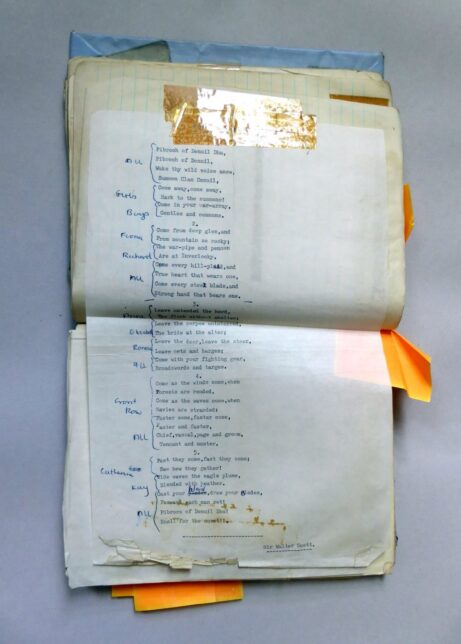 Pibroch of Donuil Dhu,
Pibroch of Donuil,
All
Wake thy wild voice anew,
Summon Clan Donuil,
Girls
Come away,come away,
Hark to the summons!
Boys
Come in your war-array,
Gentles and commons.
2.
Fiona
Come from deep glen,and
From mountain so rocky;
Richard
The war-pipe and pennon
Are at Inverlochy.
Come every hill-plaid,and
All
True heart that wears one,
Come every steel blade,and
Strong hand that bears one.
3.
Leave untended the herd,
The flock without shelter;
Leave the corpse uninterred,
The bride at the altar;
Leave the deer,leave the steer,
Leave nets and barges;
All
Come with your fighting gear,
Broadswords and targes.
4.
Come as the winds come,when
Forests are rended,
Front
Row
Come as the waves come,when
Navies are stranded;
Faster come,faster come,
Faster and faster,
All
Chief,vassal,page and groom,
Tennant and master.
5.
Fast they come,fast they come;
Catherine
See how they gather!
Wide waves the eagle plume,
Kay
Blended with heather.
Cast your plaid draw your blades,
Forward each man set!
All
Pibroch of Donuil Dhu!
Knell for the onset!
Sir Walter Scott.